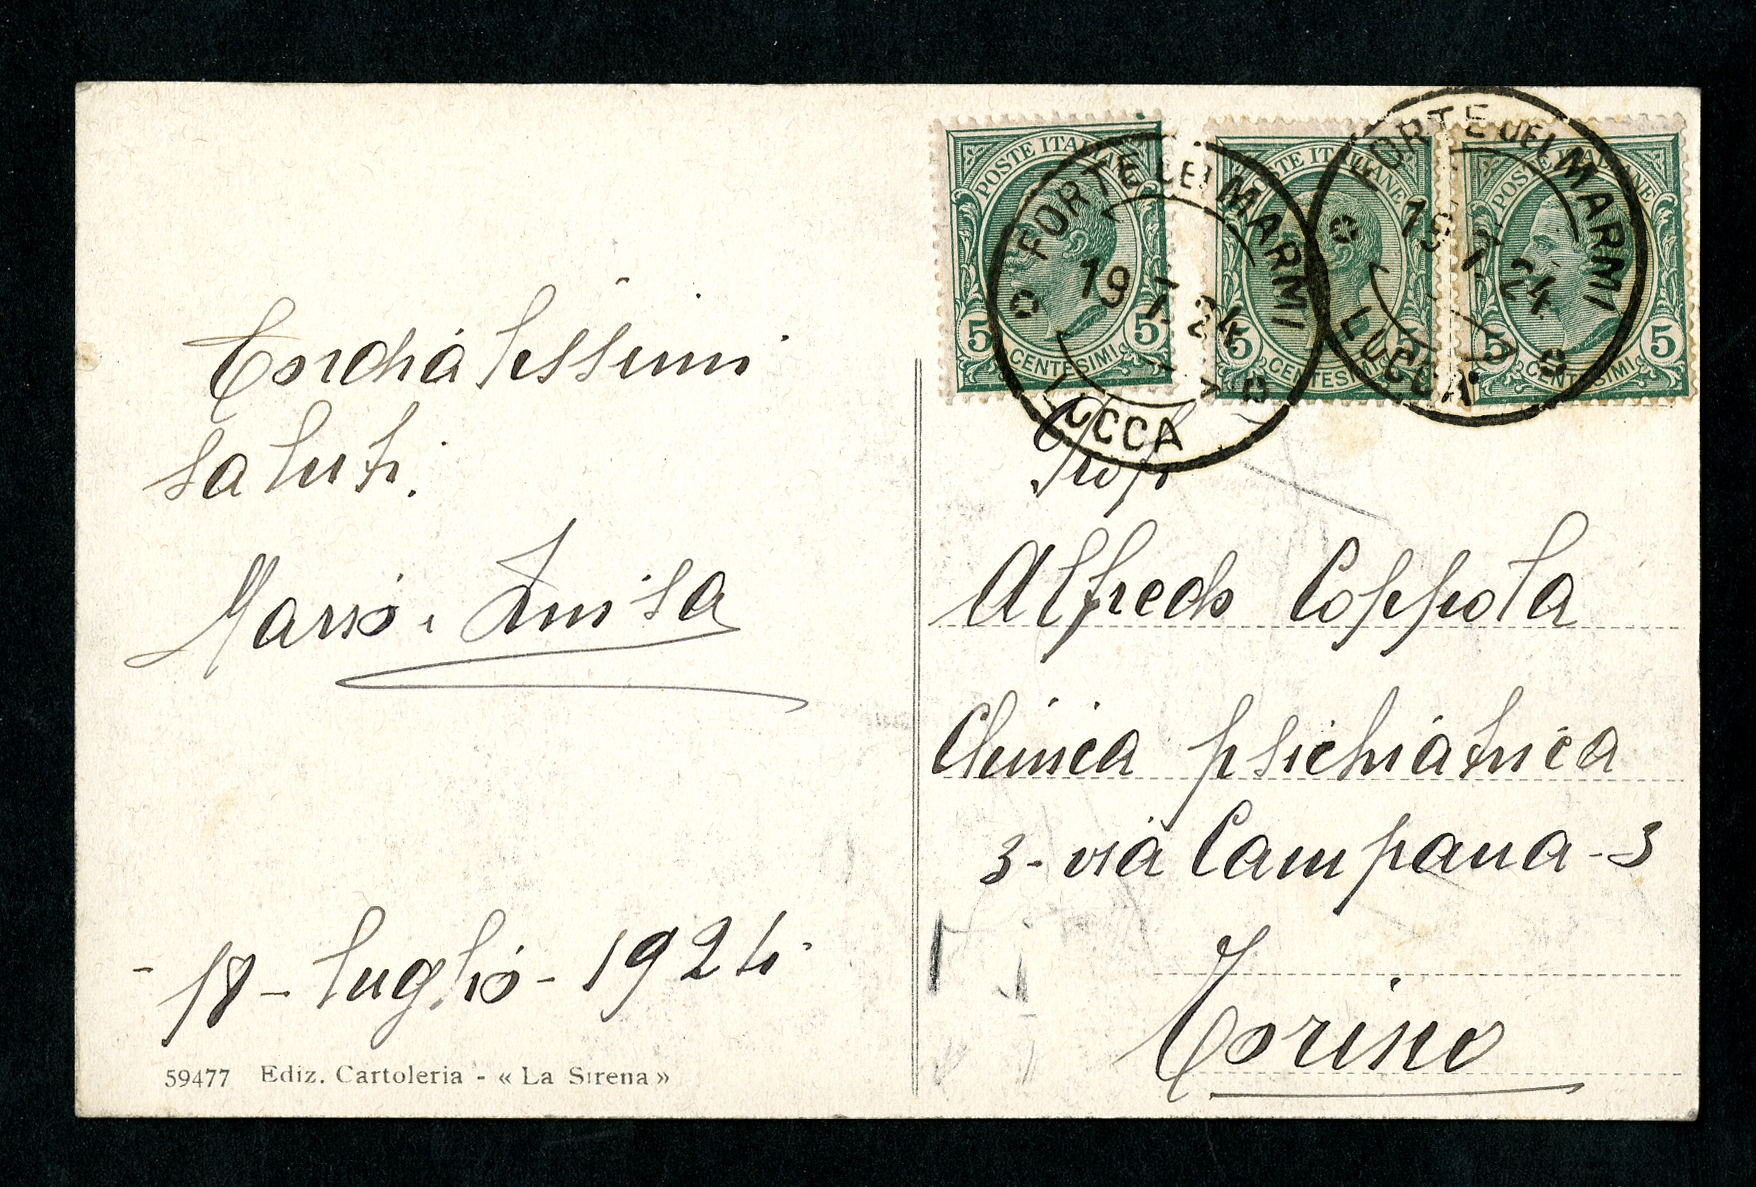 Cordialissimi
saluti.
Mario e Luisa
- 18 - luglio - 1924 -
59477 Ediz. Cartoleria - « La Sirena »
POSTE ITALIANE
5 CENTESIMI 5
POSTE ITALIANE
5 CENTESIMI 5
POSTE ITALIANE
5 CENTESIMI 5
FORTE DEI MARMI
19 7 24
LUCCA
FORTE DEI MARMI
19 7 24
LUCCA
Prof.
Alfredo Coppola
Clinica psichiatrica
3 - via Campana - 3
Torino